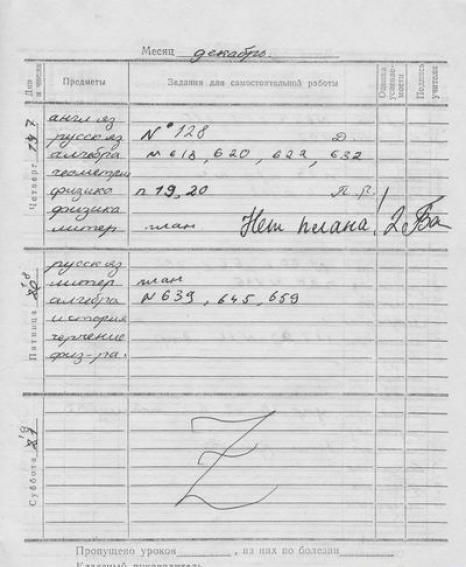 Месяц декабрь
Дни и числа Предметы Задания для самостоятельной работы Оценка успеваемости Подпись учителя
Четверг
англ яз
русск яз № 128
алгебра № 618, 620, 622, 632
геометрия
физика п 19, 20
физика
литер план Нет плана! 2
Пятница
русск яз
литер план
алгебра № 639, 645, 659
история
черчение
физ-ра.
Суббота
Z
Пропущено уроков , из них по болезни
Классный руководитель